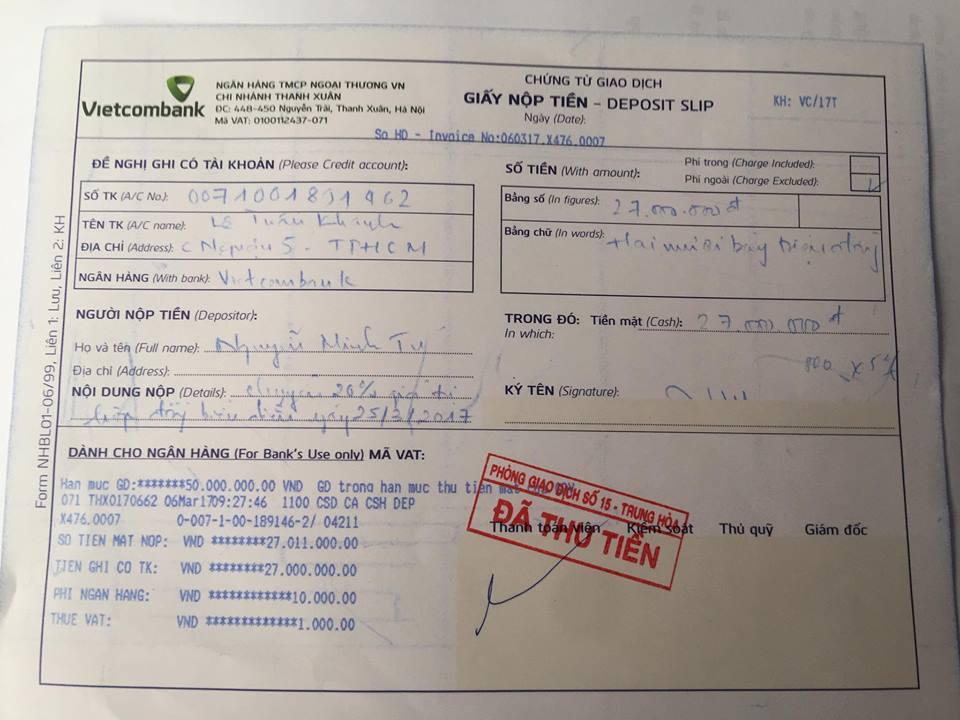 Vietcombank
NGÂN HÀNG TMCP NGOẠI THƯƠNG VN
CHI NHÁNH THANH XUÂN
ĐC: 448-450 Nguyễn Trãi, Thanh Xuân, Hà Nội
Mã VAT: 0100112437-071
CHỨNG TỪ GIAO DỊCH
GIẤY NỘP TIỀN – DEPOSIT SLIP
Ngày (Date):
KH: VC/17T
So HD - Invoice No:060317.X476.0007
ĐỀ NGHỊ GHI CÓ TÀI KHOẢN (Please Credit account):
SỐ TK (A/C No.) 0071001891962
TÊN TK (A/C name): Lê Tuấn Khanh
ĐỊA CHỈ (Address): 5 - TPHCM
NGÂN HÀNG (With bank): Vietcombank
SỐ TIỀN (With amount):
Phí trong (Charge Included):
Phí ngoài (Charge Excluded):
Bằng số (In figures): 27.000.000đ
Bằng chữ (In words): Hai mươi bảy triệu đồng
NGƯỜI NỘP TIỀN (Depositor):
Họ và tên (Full name): Nguyễn Minh Tú
Địa chỉ (Address):
NỘI DUNG NỘP (Details): chuyển 20% giá trị
ngày 25/3/2017
TRONG ĐÓ: Tiền mặt (Cash): 27.000.000đ
In which:
KÝ TÊN (Signature):
Form NHBL01-06/99, Liên 1: Lưu, Liên 2: KH
DÀNH CHO NGÂN HÀNG (For Bank's Use only) MÃ VAT:
Han muc GD:*******50.000.000.00 VND GD trong han muc thu tien mat
071 THX0170662 06Mar1709:27:46 1100 CSD CA CSH DEP
X476.0007 0-007-1-00-189146-2/ 04211
SO TIEN MAT NOP: VND ********27,011,000.00
TIEN GHI CO TK: VND ********27.000.000.00
PHI NGAN HANG: VND ************10.000.00
THUE VAT: VND *************1.000.00
PHÒNG GIAO DỊCH SỐ 15 - TRUNG HÒA
ĐÃ THU TIỀN
Thanh toán viên Kiểm soát Thủ quỹ Giám đốc